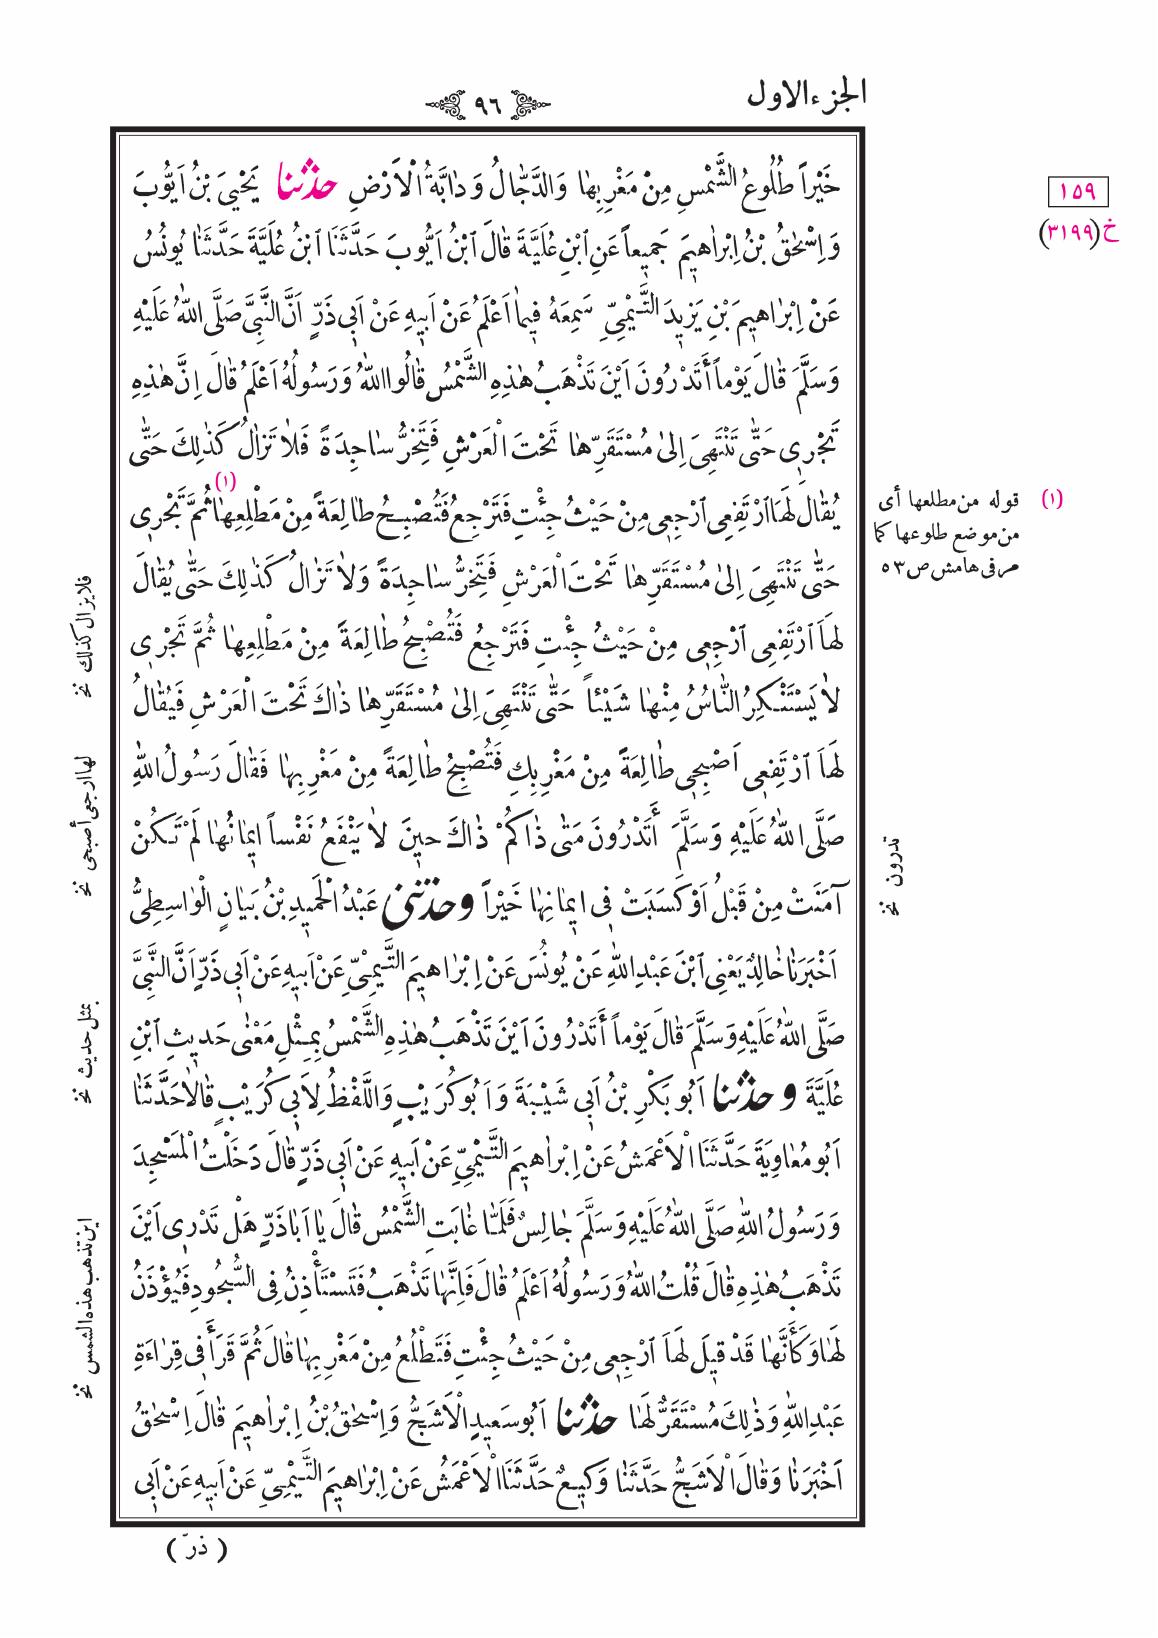 الجزء الاول
٩٦
خَيْراً طُلُوعُ الشَّمْسِ مِنْ مَغْرِبِهٰا وَالدَّجّٰالُ وَدٰابَّةُ الْاَرْضِ حدثنا يَحْيىَ بْنُ اَيُّوبَ
وَاِسْحٰقُ بْنُ اِبْرٰاهِيمَ جَمِيعاً عَنِ ابْنِ عُلَيَّةَ قٰالَ ابْنُ اَيُّوبَ حَدَّثَنَا ابْنُ عُلَيَّةَ حَدَّثَنٰا يُونُسُ
عَنْ اِبْرٰاهِيمَ بْنِ يَزِيدَ التَّيْمِيِّ سَمِعَهُ فِيمٰا اَعْلَمُ عَنْ اَبِيهِ عَنْ اَبِي ذَرٍّ اَنَّ النَّبِيَّ صَلَّى اللّٰهُ عَلَيْهِ
وَسَلَّمَ قٰالَ يَوْماً أَتَدْرُونَ اَيْنَ تَذْهَبُ هٰذِهِ الشَّمْسُ قٰالُوا اللّٰهُ وَرَسُولُهُ اَعْلَمُ قٰالَ اِنَّ هٰذِهِ
تَجْرِي حَتّٰى تَنْتَهِيَ اِلىٰ مُسْتَقَرِّهٰا تَحْتَ الْعَرْشِ فَتَخِرُّ سٰاجِدَةً فَلاٰ تَزٰالُ كَذٰلِكَ حَتّٰى
يُقٰالَ لَهَا ارْتَفِعِي ارْجِعِي مِنْ حَيْثُ جِئْتِ فَتَرْجِعُ فَتُصْبِحُ طٰالِعَةً مِنْ مَطْلِعِهٰا (١) ثُمَّ تَجْرِي
حَتّٰى تَنْتَهِيَ اِلىٰ مُسْتَقَرِّهٰا تَحْتَ الْعَرْشِ فَتَخِرُّ سٰاجِدَةً وَلاٰ تَزٰالُ كَذٰلِكَ حَتّٰى يُقٰالَ
لَهَا ارْتَفِعِي ارْجِعِي مِنْ حَيْثُ جِئْتِ فَتَرْجِعُ فَتُصْبِحُ طٰالِعَةً مِنْ مَطْلِعِهٰا ثُمَّ تَجْرِي
لاٰ يَسْتَنْكِرُ النّٰاسُ مِنْهٰا شَيْئاً حَتّٰى تَنْتَهِيَ اِلىٰ مُسْتَقَرِّهٰا ذٰاكَ تَحْتَ الْعَرْشِ فَيُقٰالُ
لَهَا ارْتَفِعِي اَصْبِحِي طٰالِعَةً مِنْ مَغْرِبِكِ فَتُصْبِحُ طٰالِعَةً مِنْ مَغْرِبِهٰا فَقٰالَ رَسُولُ اللّٰهِ
صَلَّى اللّٰهُ عَلَيْهِ وَسَلَّمَ أَتَدْرُونَ مَتٰى ذٰاكُمْ ذٰاكَ حِينَ لاٰ يَنْفَعُ نَفْساً اِيمٰانُهٰا لَمْ تَكُنْ
آمَنَتْ مِنْ قَبْلُ اَوْ كَسَبَتْ فِي اِيمٰانِهٰا خَيْراً وحدثني عَبْدُ الْحَمِيدِ بْنُ بَيٰانٍ الْوٰاسِطِيُّ
اَخْبَرَنٰا خٰالِدٌ يَعْنِي ابْنَ عَبْدِ اللّٰهِ عَنْ يُونُسَ عَنْ اِبْرٰاهِيمَ التَّيْمِيِّ عَنْ اَبِيهِ عَنْ اَبِي ذَرٍّ اَنَّ النَّبِيَّ
صَلَّى اللّٰهُ عَلَيْهِ وَسَلَّمَ قٰالَ يَوْماً أَتَدْرُونَ اَيْنَ تَذْهَبُ هٰذِهِ الشَّمْسُ بِمِثْلِ مَعْنٰى حَدِيثِ ابْنِ
عُلَيَّةَ وحدثنا اَبُو بَكْرِ بْنُ اَبِي شَيْبَةَ وَاَبُو كُرَيْبٍ وَاللَّفْظُ لِاَبِي كُرَيْبٍ قٰالاٰ حَدَّثَنٰا
اَبُو مُعٰاوِيَةَ حَدَّثَنَا الْاَعْمَشُ عَنْ اِبْرٰاهِيمَ التَّيْمِيِّ عَنْ اَبِيهِ عَنْ اَبِي ذَرٍّ قٰالَ دَخَلْتُ الْمَسْجِدَ
وَرَسُولُ اللّٰهِ صَلَّى اللّٰهُ عَلَيْهِ وَسَلَّمَ جٰالِسٌ فَلَمّٰا غٰابَتِ الشَّمْسُ قٰالَ يٰا اَبٰا ذَرٍّ هَلْ تَدْرِي اَيْنَ
تَذْهَبُ هٰذِهِ قٰالَ قُلْتُ اللّٰهُ وَرَسُولُهُ اَعْلَمُ قٰالَ فَاِنَّهٰا تَذْهَبُ فَتَسْتَأْذِنُ فِي السُّجُودِ فَيُؤْذَنُ
لَهٰا وَكَأَنَّهٰا قَدْ قِيلَ لَهَا ارْجِعِي مِنْ حَيْثُ جِئْتِ فَتَطْلُعُ مِنْ مَغْرِبِهٰا قٰالَ ثُمَّ قَرَأَ فِي قِرٰاءَةِ
عَبْدِ اللّٰهِ وَذٰلِكَ مُسْتَقَرٌّ لَهٰا حدثنا اَبُو سَعِيدٍ الْاَشَجُّ وَاِسْحٰقُ بْنُ اِبْرٰاهِيمَ قٰالَ اِسْحٰقُ
اَخْبَرَنٰا وَقٰالَ الْاَشَجُّ حَدَّثَنٰا وَكِيعٌ حَدَّثَنَا الْاَعْمَشُ عَنْ اِبْرٰاهِيمَ التَّيْمِيِّ عَنْ اَبِيهِ عَنْ اَبِي
( ذرّ )
١٥٩
خ(٣١٩٩)
(١) قوله من مطلعها أى
من موضع طلوعها كما
مر فى هامش ص ٥٣
تدرون نخ
فلا يزال كذلك نخ
لها ارجعى أصبحى نخ
بمثل حديث نخ
اين تذهب هذه الشمس نخ